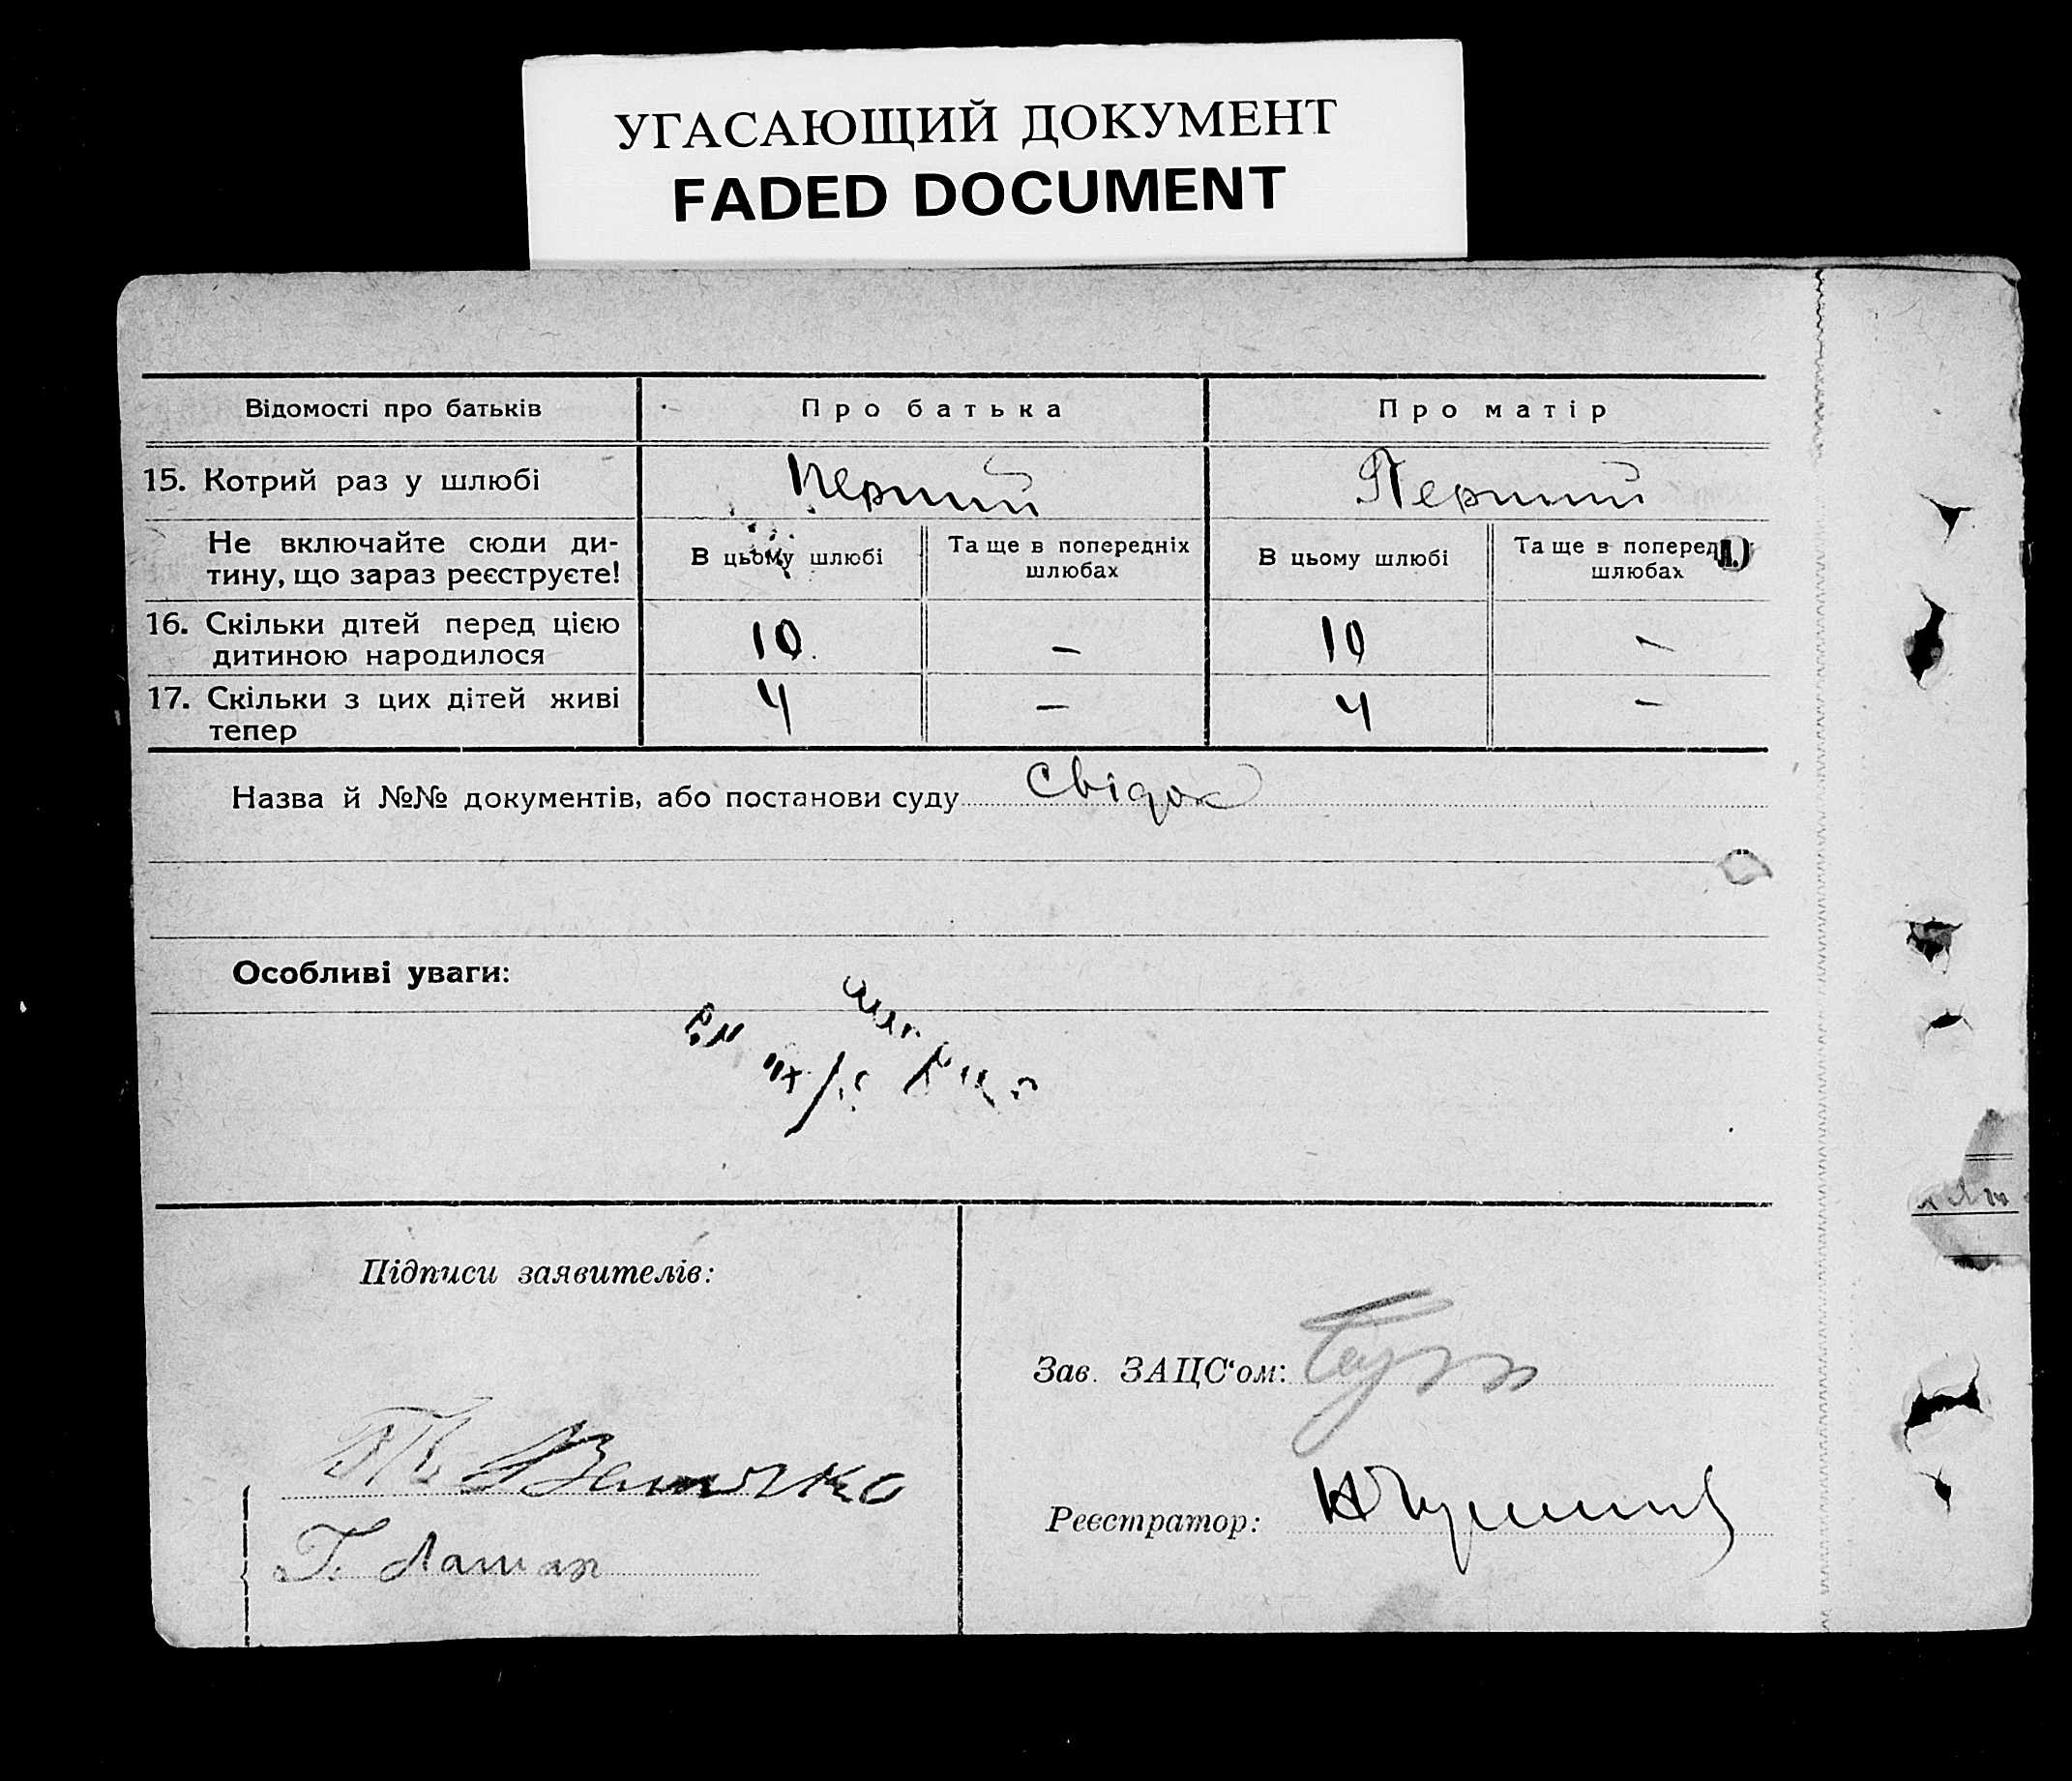 УГАСАЮЩИЙ ДОКУМЕНТ
FADED DOCUMENT
Відомості про батьків
Про батька
Про матір
15. Котрий раз у шлюбі
Перший
Перший
Не включайте сюди ди-
тину, що зараз реєструєте!
В цьому шлюбі
Та ще в попередніх
шлюбах
В цьому шлюбі
Та ще в поперед
шлюбах
16. Скільки дітей перед цією
дитиною народилося
10
—
10
—
17. Скільки з цих дітей живі
тепер
4
—
4
—
Назва й №№ документів, або постанови суду Свідок
Особливі уваги:
Підписи заявителів:
Зав. ЗАЦС‘ом:
Реєстратор:
Г.